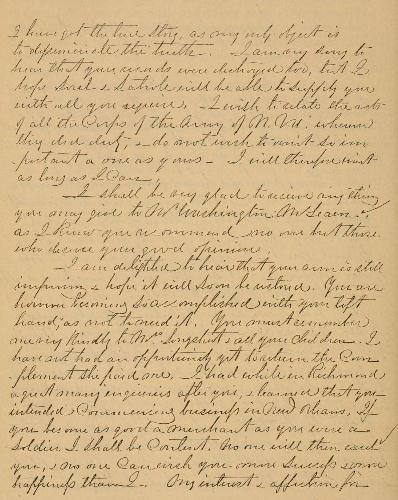 I have got the true story, as my only object is
to disseminate the truth. I am very sorry to
hear that your records were destroyed too, but I
hope Sorrel & Latrobe will be able to supply you
with all you require. I wish to relate the acts
of all the Corps of the Army of N. Va. wherein
they did duty, & do not wish to omit so im-
portant a one as yours. I will therefore wait
as long as I can.
I shall be very glad to receive any thing
you may give to Mr Washington McLean
as I know you recommend no one but those
who deserve your good opinion.
I am delighted to hear that your arm is still
improving & hope it will soon be restored. You are
however becoming so accomplished with your left
hand, as not to need it. You must remember
me very kindly to Mrs Longstreet & all your children. I
have not had an opportunity yet to return the Com
plement she paid me. I had while in Richmond
a great many enquiries after you, & learned that you
intended Commencing business in New Orleans. If
you become as good a merchant as you were a
soldier I shall be content. No one will then excel
you, & no one can wish you more success & more
happiness than I. My interest & affection for